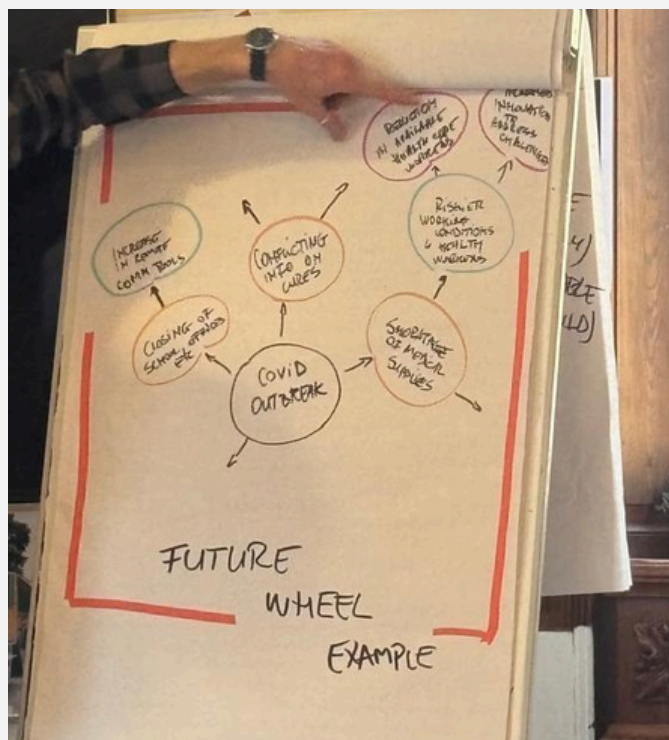 REDUCTION
IN AVAILABLE
HEALTH CARE
WORKERS
INCREASED
INNOVATION
TO
ADDRESS
CHALLENGES
INCREASE
IN REMOTE
COMM TOOLS
CONFLICTING
INFO ON
CURES
RISKIER
WORKING
CONDITIONS
4 HEALTH
WORKERS
CLOSING OF
SCHOOL, OFFICES
ETC
COVID
OUTBREAK
SHORTAGE
OF MEDICAL
SUPPLIES
FUTURE
WHEEL
EXAMPLE